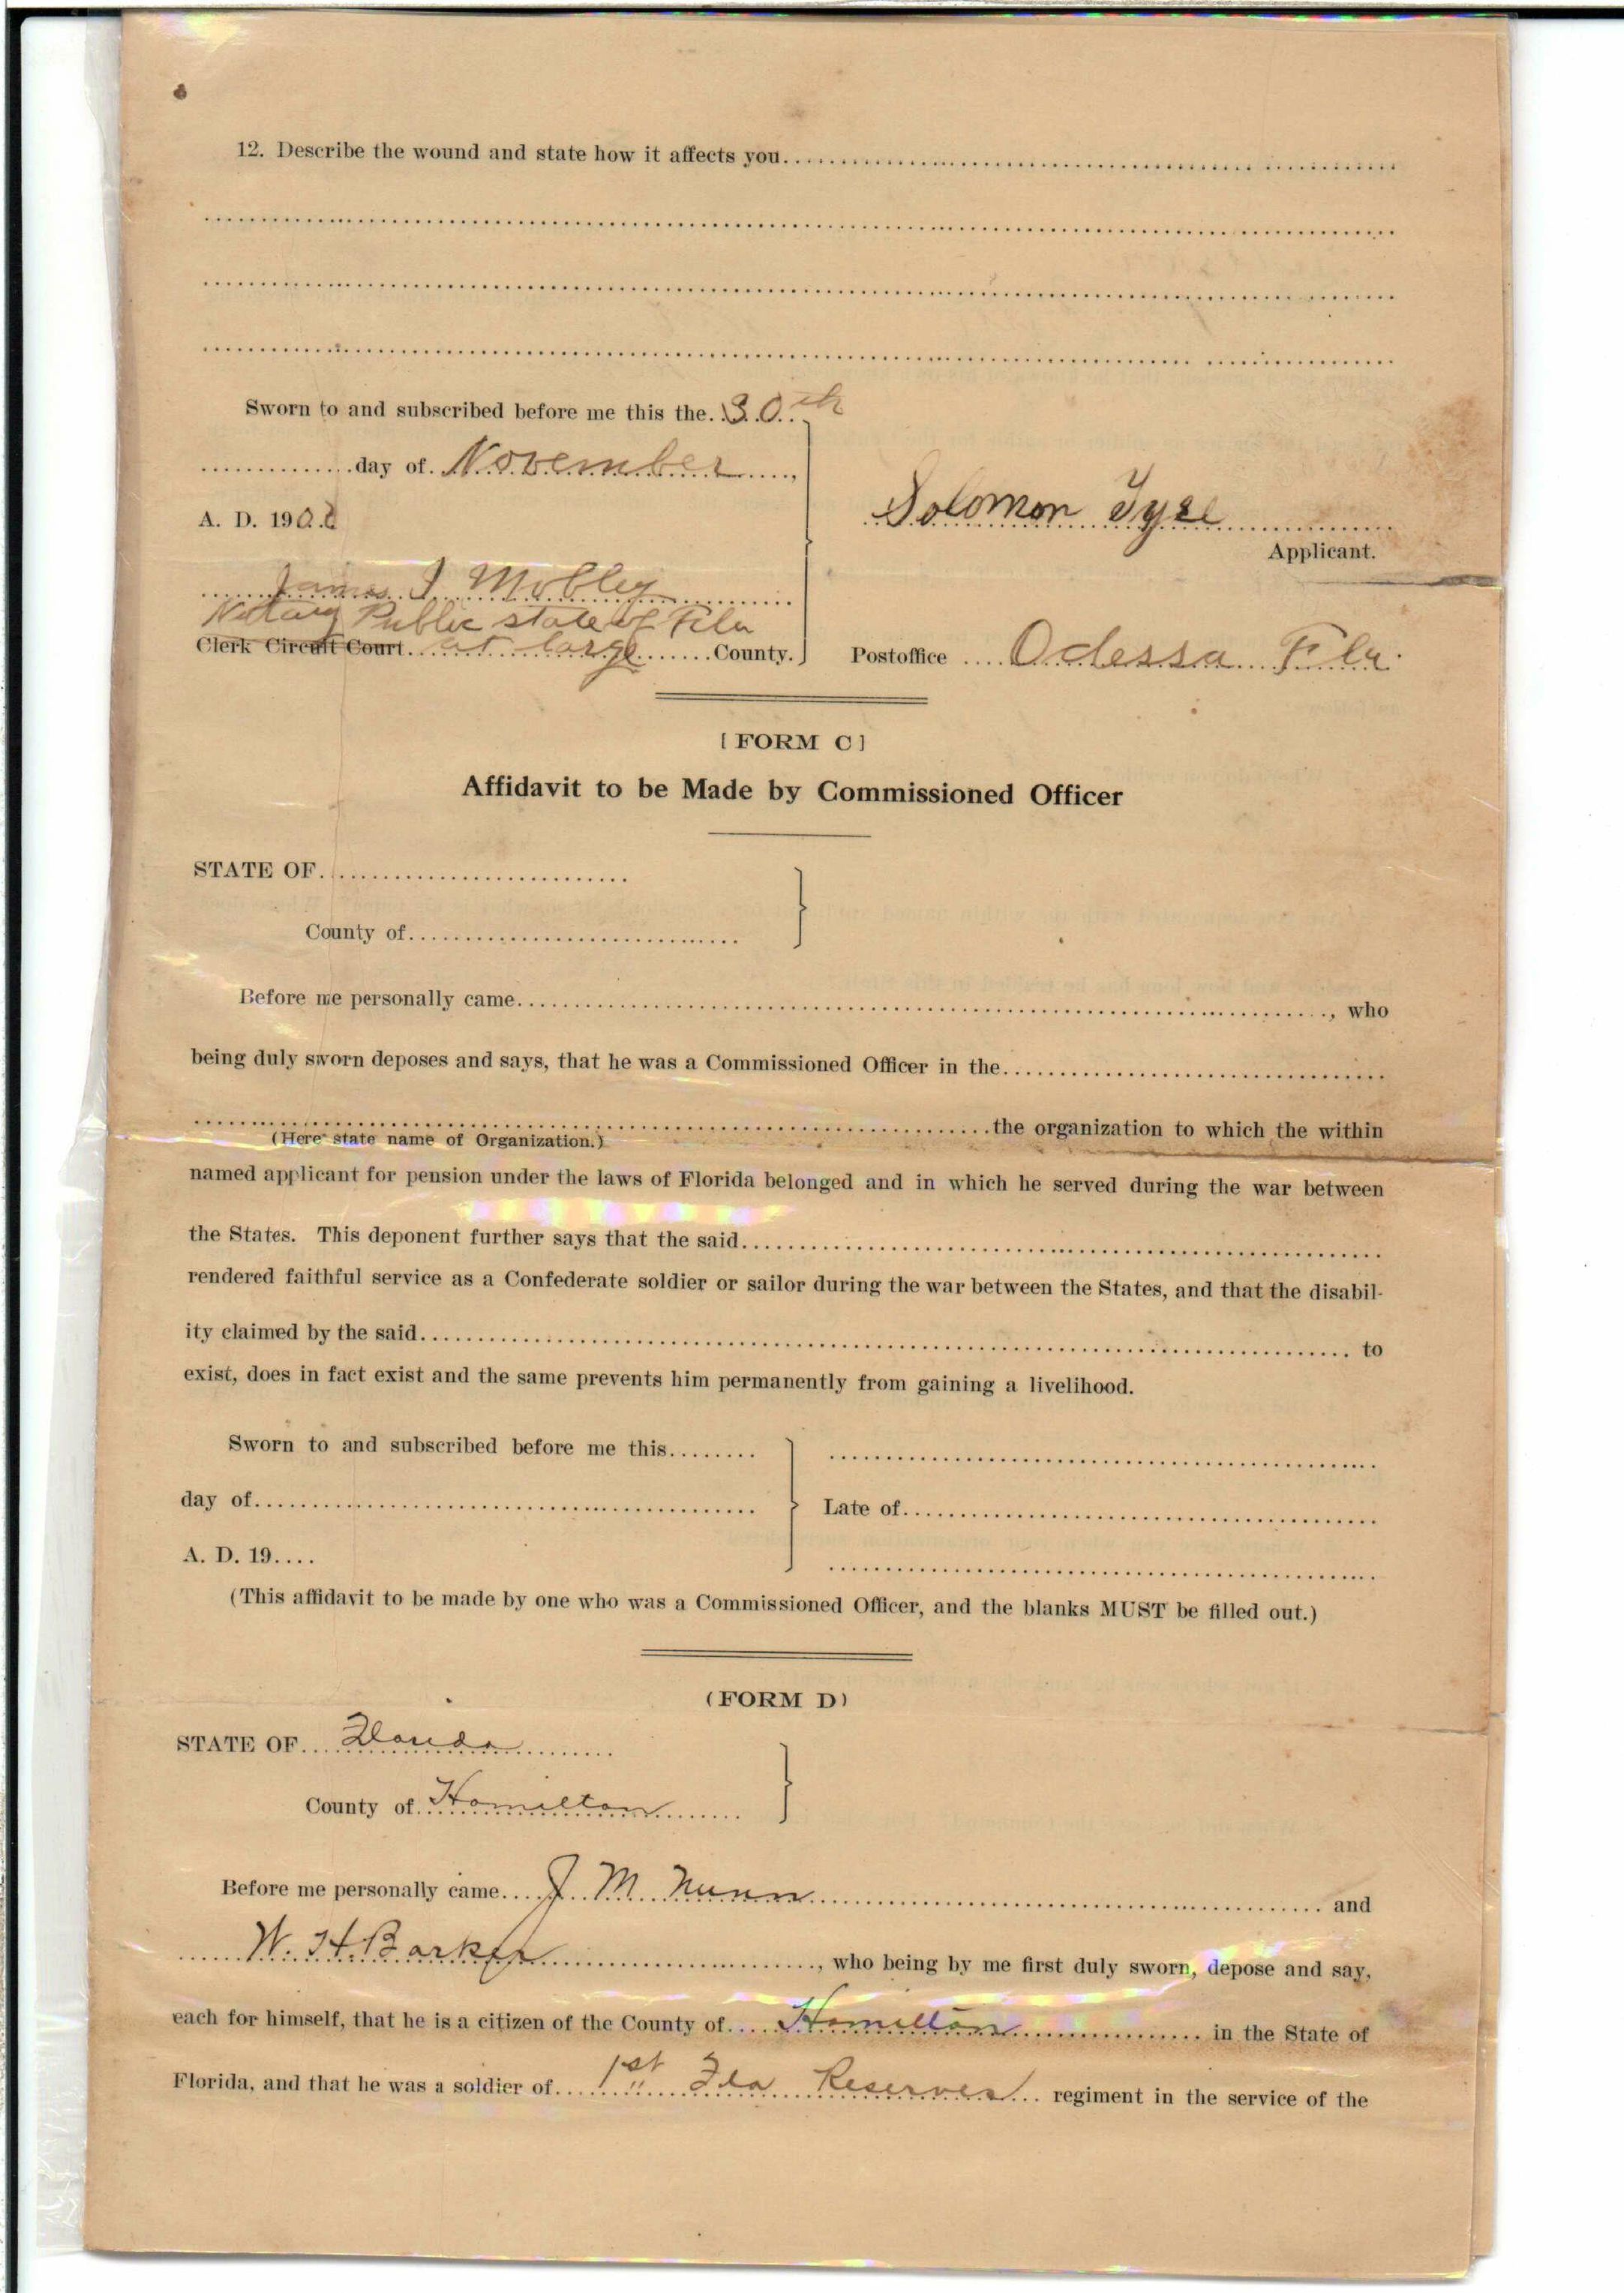 12. Describe the wound and state how it affects you
Sworn to and subscribed before me this the 30th
day of November,
A. D. 190
Solomon Tyre
Applicant.
James I Mobley
Notary Public state of Fla
Clerk Circuit Court at large County.
Postoffice Odessa Fla.
[FORM C]
Affidavit to be Made by Commissioned Officer
STATE OF
County of
Before me personally came , who
being duly sworn deposes and says, that he was a Commissioned Officer in the
the organization to which the within
(Here state name of Organization.)
named applicant for pension under the laws of Florida belonged and in which he served during the war between
the States. This deponent further says that the said
rendered faithful service as a Confederate soldier or sailor during the war between the States, and that the disabil-
ity claimed by the said to
exist, does in fact exist and the same prevents him permanently from gaining a livelihood.
Sworn to and subscribed before me this
day of
Late of
A. D. 19
(This affidavit to be made by one who was a Commissioned Officer, and the blanks MUST be filled out.)
(FORM D)
STATE OF Florida
County of Hamilton
Before me personally came J. M. Nunn and
W. H. Barker , who being by me first duly sworn, depose and say,
each for himself, that he is a citizen of the County of Hamilton in the State of
Florida, and that he was a soldier of 1st Fla Reserves regiment in the service of the